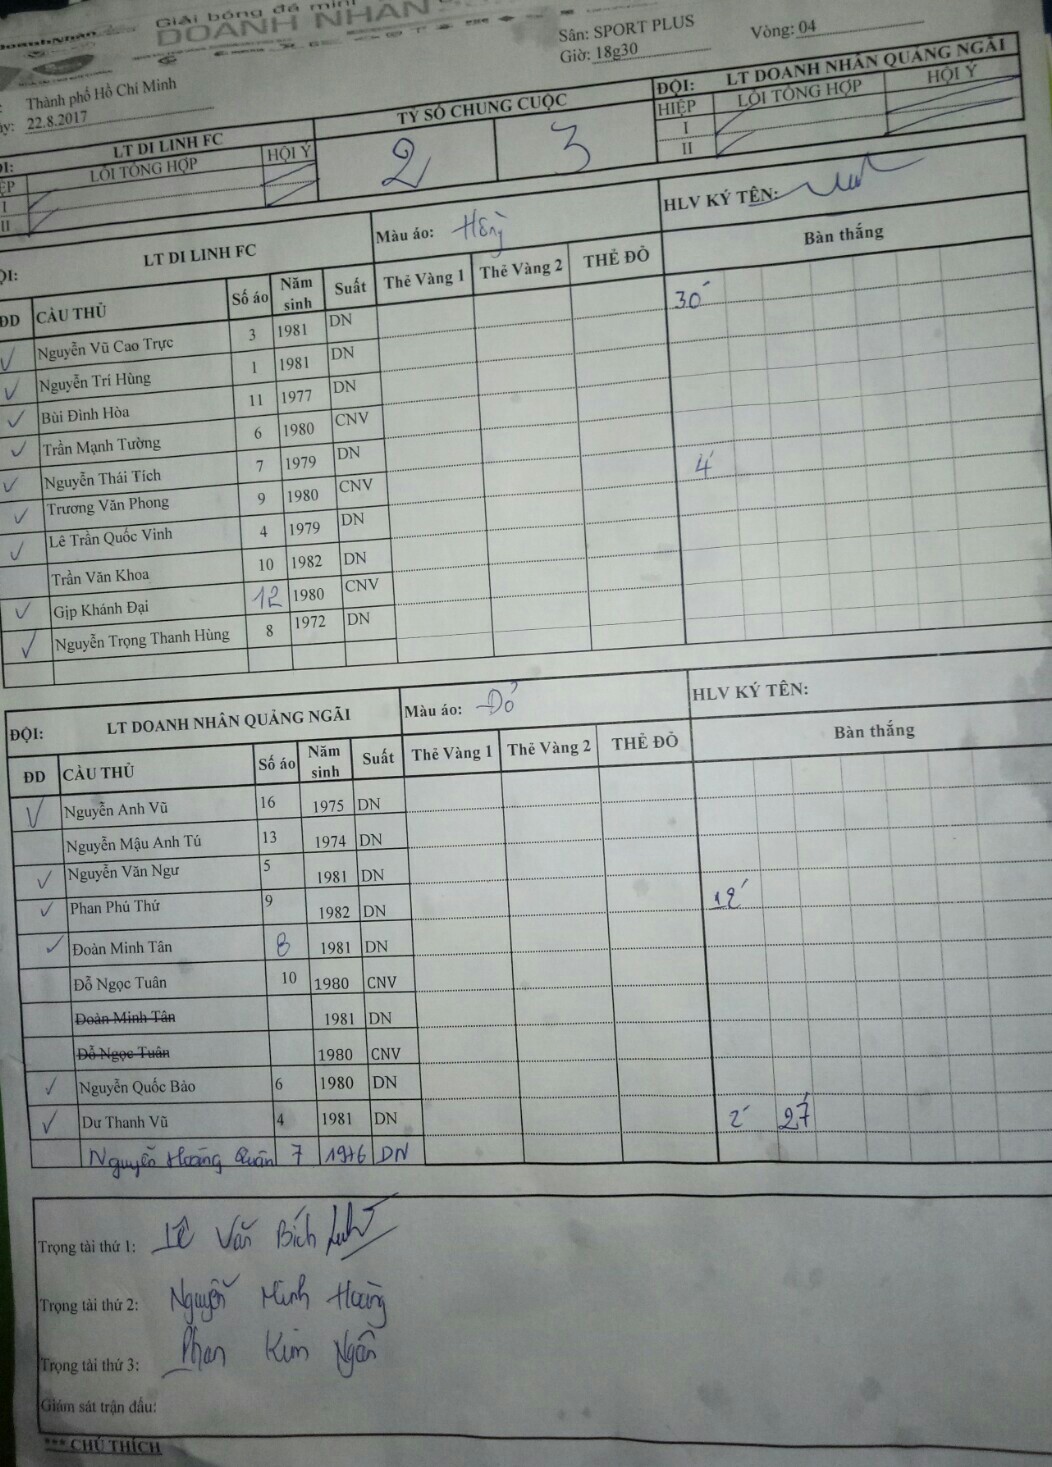 Giải bóng đá mini
DOANH NHÂN
Sân: SPORT PLUS
Vòng: 04
Giờ: 18g30
Thành phố Hồ Chí Minh
22.8.2017
LT DI LINH FC
TỶ SỐ CHUNG CUỘC
ĐỘI: LT DOANH NHÂN QUẢNG NGÃI
LỖI TỔNG HỢP HỘI Ý
2 3
HIỆP LỖI TỔNG HỢP HỘI Ý
I I
II II
LT DI LINH FC Màu áo: Hồng HLV KÝ TÊN:
ĐD CẦU THỦ Số áo Năm sinh Suất Thẻ Vàng 1 Thẻ Vàng 2 THẺ ĐỎ Bàn thắng
Nguyễn Vũ Cao Trực 3 1981 DN 30'
Nguyễn Tri Hùng 1 1981 DN
Bùi Đình Hòa 11 1977 DN
Trần Mạnh Tường 6 1980 CNV
Nguyễn Thái Tích 7 1979 DN
Trương Văn Phong 9 1980 CNV 4'
Lê Trần Quốc Vinh 4 1979 DN
Trần Văn Khoa 10 1982 DN
Gịp Khánh Đại 12 1980 CNV
Nguyễn Trọng Thanh Hùng 8 1972 DN
ĐỘI: LT DOANH NHÂN QUẢNG NGÃI Màu áo: Đỏ HLV KÝ TÊN:
ĐD CẦU THỦ Số áo Năm sinh Suất Thẻ Vàng 1 Thẻ Vàng 2 THẺ ĐỎ Bàn thắng
Nguyễn Anh Vũ 16 1975 DN
Nguyễn Mậu Anh Tú 13 1974 DN
Nguyễn Văn Ngư 5 1981 DN
Phan Phú Thứ 9 1982 DN 12'
Đoàn Minh Tân 8 1981 DN
Đỗ Ngọc Tuân 10 1980 CNV
Đoàn Minh Tân 1981 DN
Đỗ Ngọc Tuân 1980 CNV
Nguyễn Quốc Bảo 6 1980 DN
Dư Thanh Vũ 4 1981 DN 2' 27'
Nguyễn Hoàng Quân 7 1976 DN
Trọng tài thứ 1: Lê Văn Bích
Trọng tài thứ 2: Nguyễn Minh Hoàng
Trọng tài thứ 3: Phan Kim Ngân
Giám sát trận đấu:
*** CHÚ THÍCH